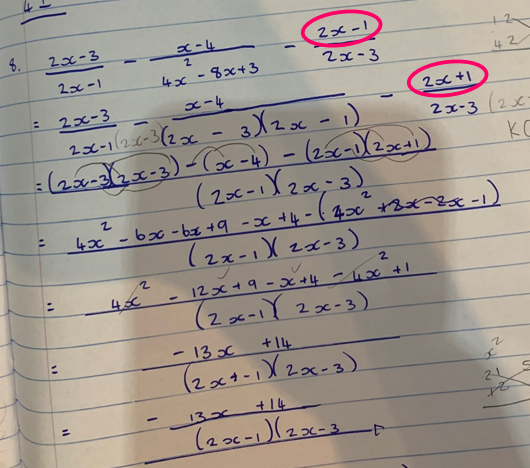 8. (2x-3)/(2x-1) - (x-4)/(4x² - 8x+3) - (2x-1)/(2x-3)
= (2x-3)/(2x-1) - (x-4)/((2x-3)(2x - 3)(2x - 1)) - (2x+1)/(2x-3)
= ((2x-3)(2x-3) - (x-4) - (2x-1)(2x+1))/((2x-1)(2x-3))
= (4x² - 6x - 6x+9 - x+4 - (4x² +2x-2x-1))/((2x-1)(2x-3))
= (4x² - 12x+9 -x+4 - 4x²+1)/((2x-1)(2x-3))
= (-13x +14)/((2x+-1)(2x-3))
= - (13x +14)/((2x-1)(2x-3
12
42
(2x
x²
21